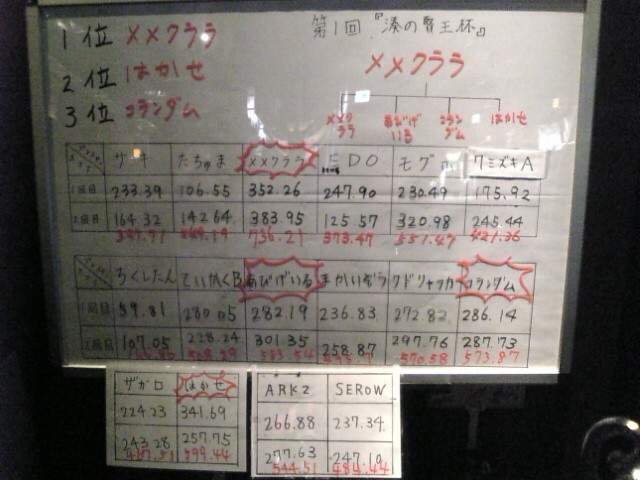 第1回『湊の賢王杯』
1位 メメクララ
2位 はかせ
3位 コランダム
メメクララ
メメクララ あびげいる コランダム はかせ
ザキ たちゅま メメクララ EDO モグホ ワミズキA
1回目 233.39 106.55 352.26 247.90 230.49 175.92
2回目 164.32 142.64 383.95 125.57 320.98 245.44
397.71 249.19 736.21 373.47 551.47 421.36
ろくしたん ていかくB あびげいる まかいぞう コランダム
1回目 59.81 280.05 282.19 236.83 272.82 286.14
2回目 107.05 228.24 301.35 258.87 297.76 287.73
508.29 583.54 570.58 573.87
ザガロ はかせ
224.23 341.69
243.28 257.75
599.44
ARKZ SEROW
266.88 237.34
277.63 247.10
544.51 484.44